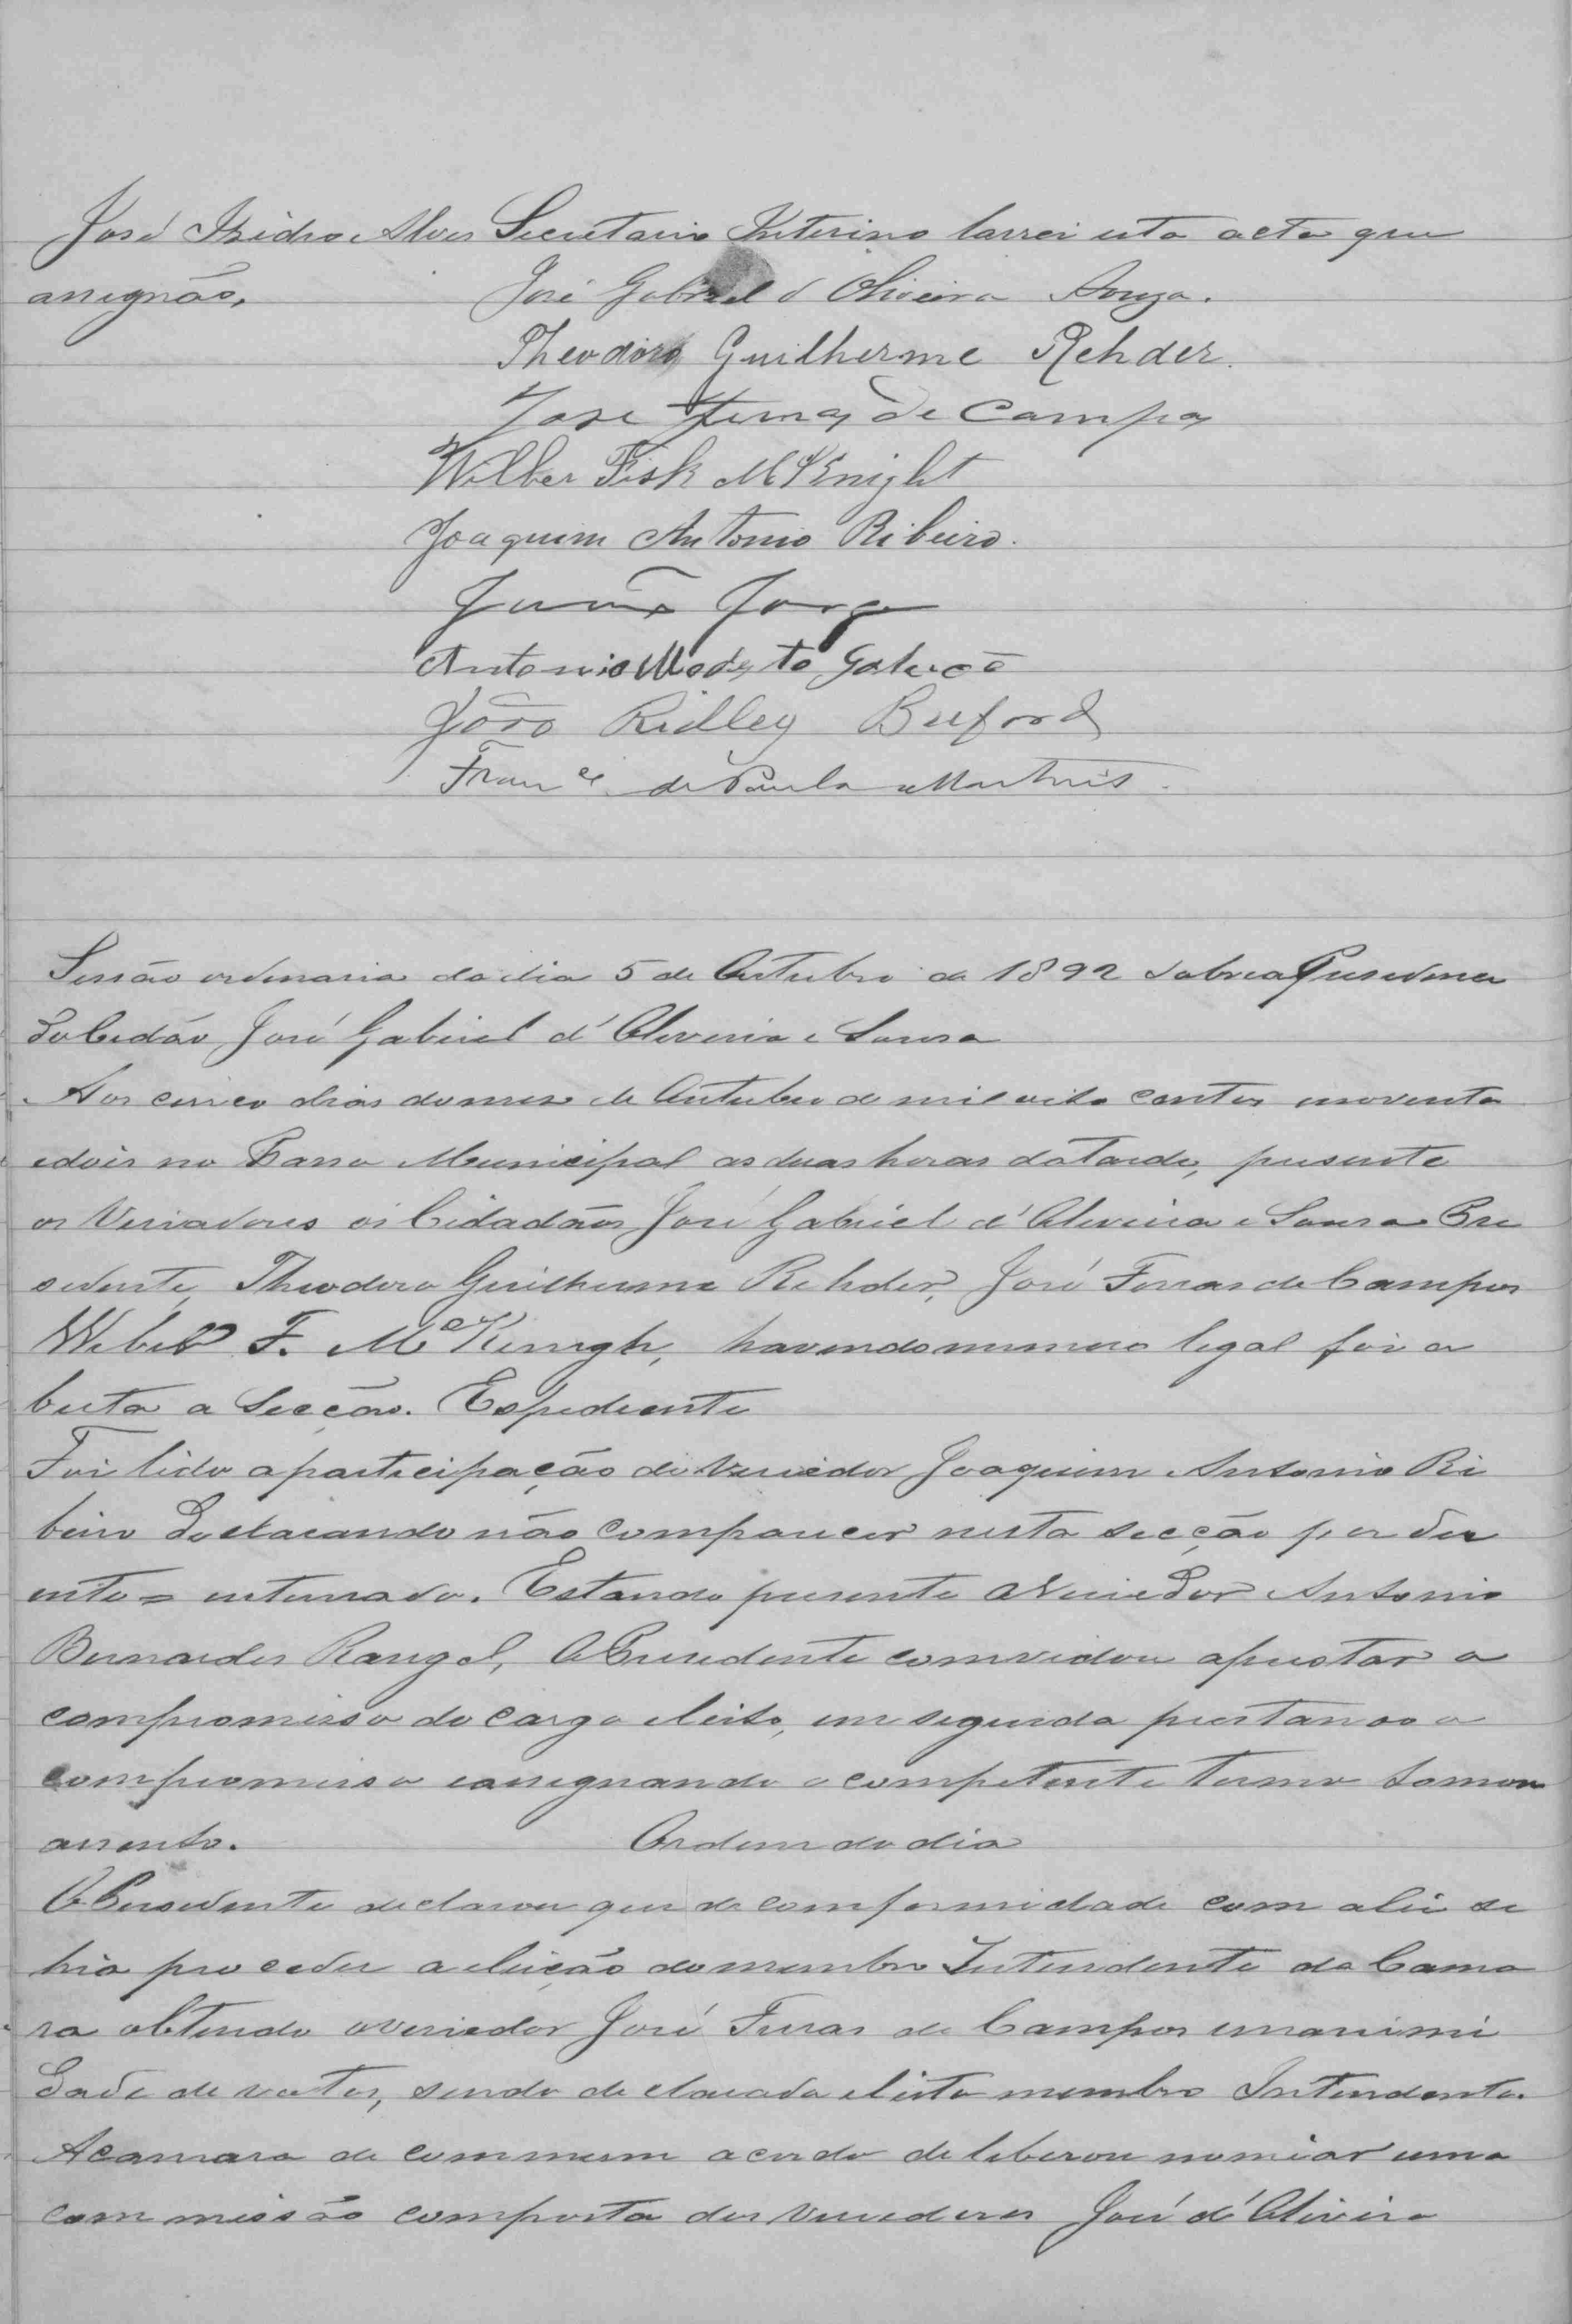 José Isidro Alves Secretario Interino lavrei esta acta que
assignão.
José Gabriel d'Oliveira Souza.
Theodoro Guilherme Rehder.
José Ferraz de Campos
Wilber Fisk McKnight
Joaquim Antonio Ribeiro.
Jorge
Antonio Modesto Galvão
João Ridley Buford
Franco de Paula Martins.
Sessão ordinaria do dia 5 de Outubro de 1892 Presidencia
do Cidão José Gabriel d'Oliveira e Sousa
Aos cinco dias do mes de Outubro de mil oito centos noventa
e dois no Passo Municipal as duas horas da tarde, presente
os Veriadores os Cidadãos José Gabriel d'Oliveira e Sousa Pre
sidente, Theodoro Guilherme Rehder, José Ferras de Campos
F. Mc havendo numero legal foi a
berta a Secção. Expediente
Foi lido a participação do Veriador Joaquim Antonio Ri
beiro declarando não comparecer nesta secção por
. Estando presente o Veriador Antonio
Bernardes Rangel, O Presidente comvidou a prestar o
compromisso do cargo eleito, em seguida prestando o
compromisso e assignando o competente termo tomou
assento. Ordem do dia
O Presidente declarou que de comformidade com a lei se
hia proceder a eleição do membro Intendente da Cama
ra obtendo o veriador José Ferras de Campos unanimi
dade de votos, sendo declarado eleito membro Intendente.
A camara de commum acordo deliberou nomiar uma
commissão composta dos Veriadores José d'Oliveira